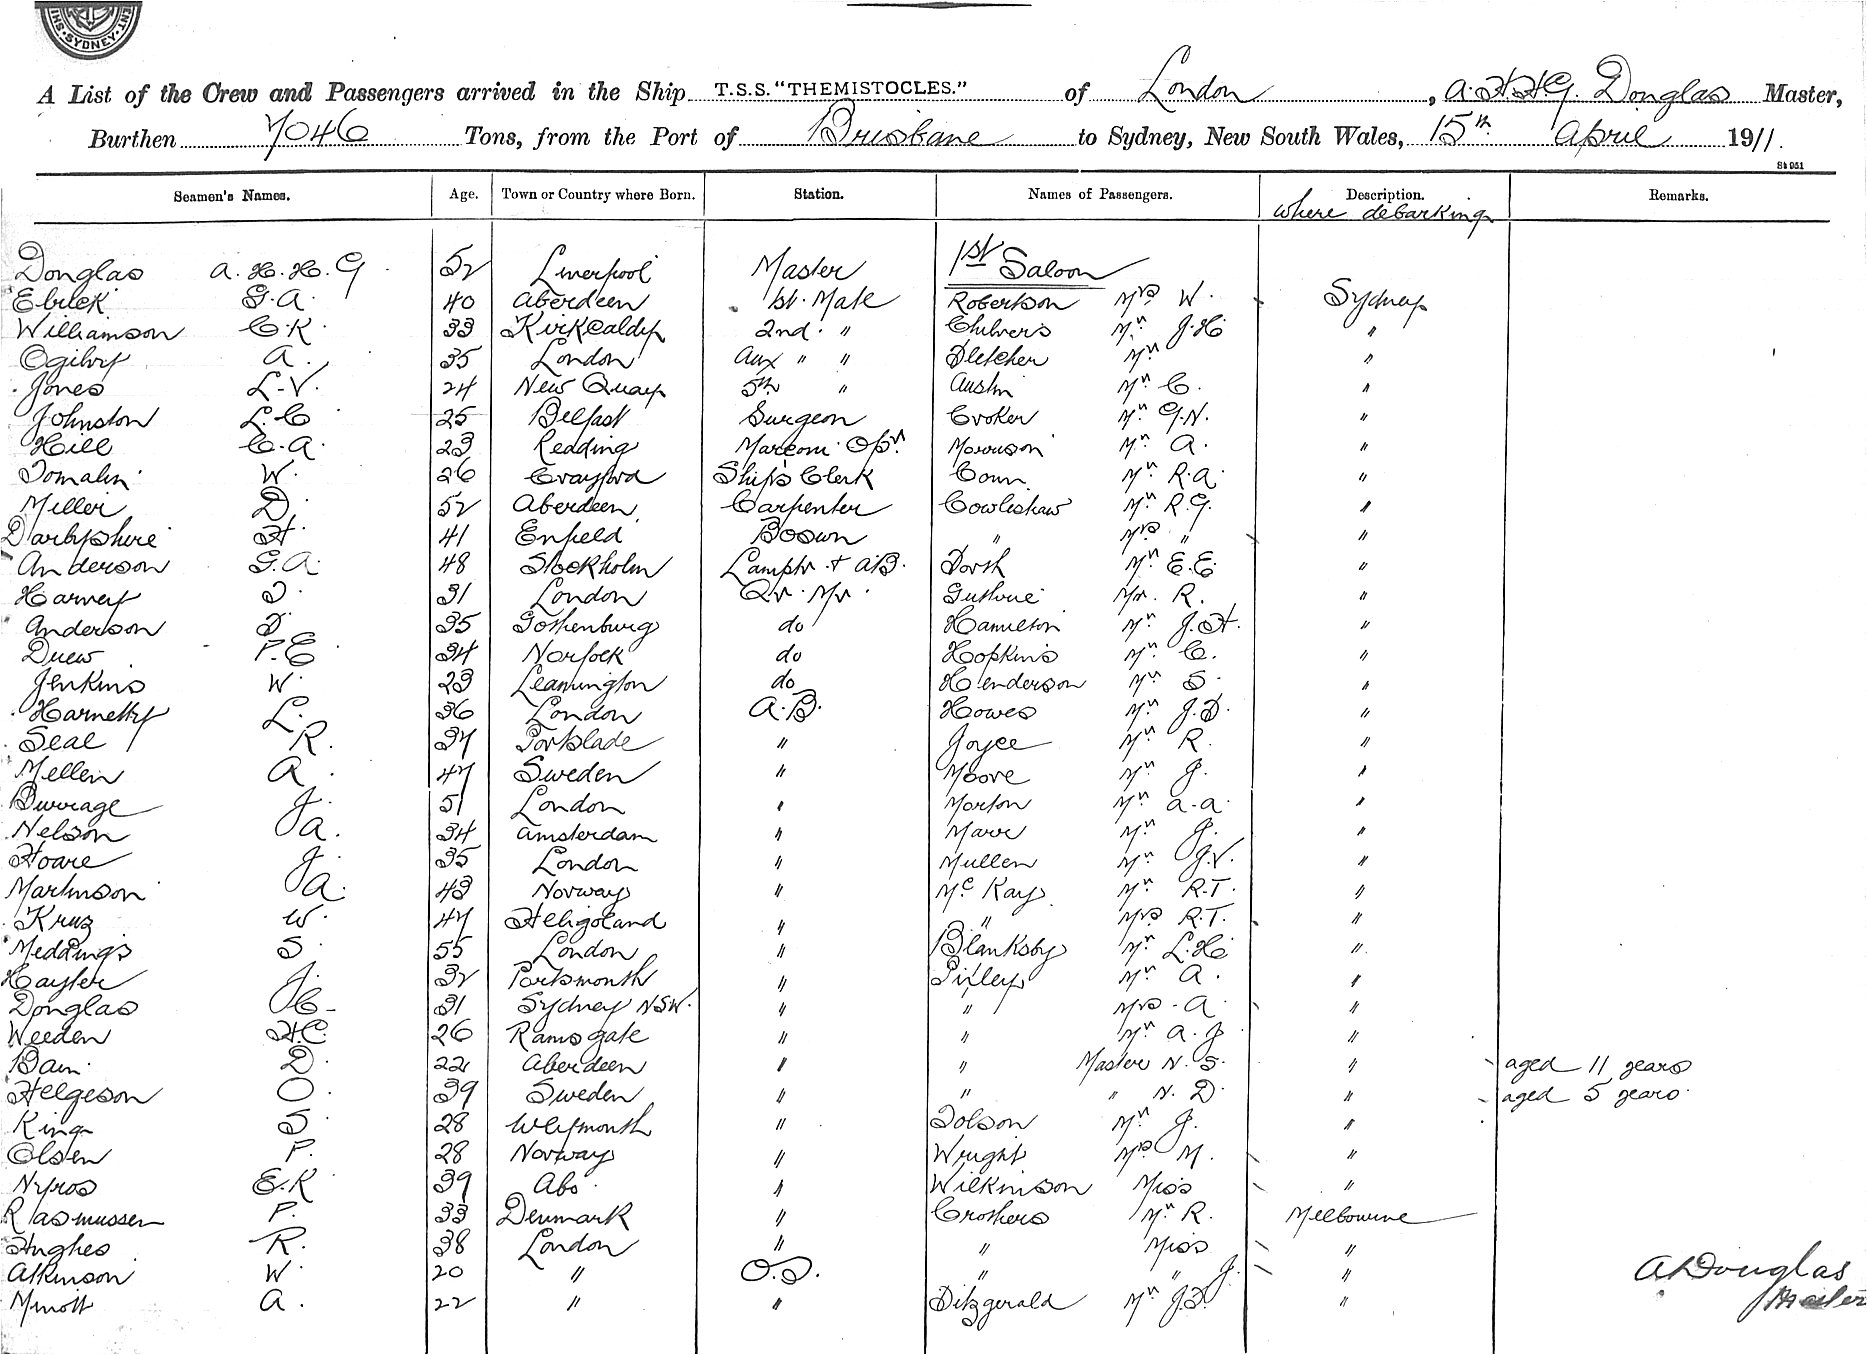 SYDNEY
A List of the Crew and Passengers arrived in the Ship T.S.S. "THEMISTOCLES." of London, A.H.H.G. Douglas Master,
Burthen 7046 Tons, from the Port of Brisbane to Sydney, New South Wales, 15th April 1911.
St 951
Seamen's Names. Age. Town or Country where Born. Station. Names of Passengers. Description. Remarks.
where debarking
1st Saloon
Douglas A.H.H.G 52 Liverpool Master
G.A. 40 Aberdeen 1st Mate Robertson Mrs W. Sydney
Williamson C.R. 33 Kirkcaldy 2nd " Chilvers Mr J.H "
Ogilvy A. 35 London Aux " " Fletcher Mr "
Jones L.V. 24 New Quay 5th " Austin Mr C. "
Johnston L.C 25 Belfast Surgeon Croker Mr G.N. "
Hill C.A. 23 Redding Marconi Opr. Morrison Mr A. "
Tomalin W. 26 Crayford Ship's Clerk Conn Mr R.A. "
Miller D. 52 Aberdeen Carpenter Cowlishaw Mr R.G. "
Darbyshire H. 41 Enfield Bosun " Mrs " "
Anderson G.A. 48 Stockholm Lamptr. & A.B. Mr E.E. "
Harvey T. 31 London Qr. Mr. Guthrie Mr. R. "
Anderson T. 35 Gothenburg do Hamilton Mr J.H. "
Drew P.E 34 Norfolk do Hopkins Mr C. "
Jenkins W. 23 Leamington do Henderson Mr S. "
Harnetty L. 36 London A.B. Howes Mr J.D. "
Seal R. 37 Portslade " Joyce Mr R. "
Mellin A. 47 Sweden " Moore Mr J. "
Burrage J. 51 London " Morton Mr A.A. "
Nelson A. 34 Amsterdam " Marr Mr J. "
Hoare J. 35 London " Mullen Mr J.V. "
Martinson A. 43 Norway " McKay Mr R.T. "
Kruz W. 47 Heligoland " " Mrs R.T. "
Meddings S. 55 London " Blanksby Mr L.H "
Hayter J. 32 Portsmouth " Pixley Mr A. "
Douglas C. 31 Sydney NSW. " " Mrs. A. "
Weeden H.C. 26 Ramsgate " " Mr A.J. "
Bain D. 22 Aberdeen " " Master N.S. " aged 11 years
Helgeson O. 39 Sweden " " " N.D. " aged 5 years.
King S. 28 Weymouth " Tolson Mr J. "
Olsen P. 28 Norway " Wright Mrs M. "
Nyros E.R 39 Abo " Wilkinson Miss "
Rasmussen P. 33 Denmark " Crothers Mr R. Melbourne
Hughes R. 38 London " " Miss "
Atkinson W. 20 " O.S. " " J. "
Minott A. 22 " " Fitzgerald Mr J.D. "
A Douglas
Master